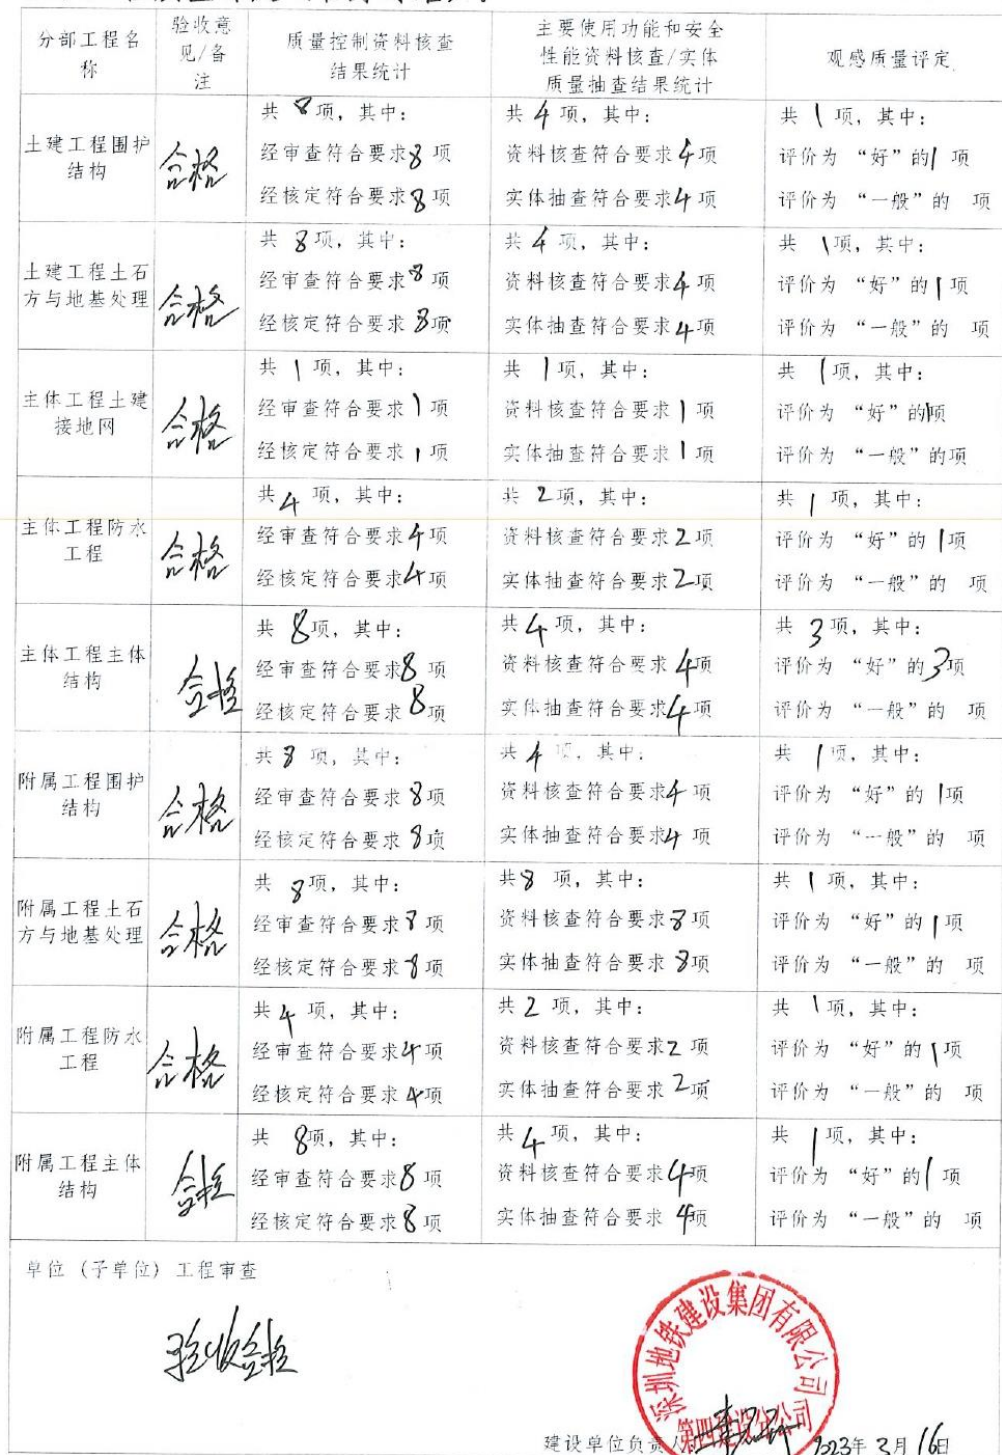 分部工程名称
验收意见/备注
质量控制资料核查结果统计
主要使用功能和安全性能资料核查/实体质量抽查结果统计
观感质量评定
土建工程围护结构
合格
共 8 项，其中：
经审查符合要求 8 项
经核定符合要求 8 项
共 4 项，其中：
资料核查符合要求 4 项
实体抽查符合要求 4 项
共 1 项，其中：
评价为 “好”的 1 项
评价为 “一般”的 项
土建工程土石方与地基处理
合格
共 8 项，其中：
经审查符合要求 8 项
经核定符合要求 8 项
共 4 项，其中：
资料核查符合要求 4 项
实体抽查符合要求 4 项
共 1 项，其中：
评价为 “好”的 1 项
评价为 “一般”的 项
主体工程土建接地网
合格
共 1 项，其中：
经审查符合要求 1 项
经核定符合要求 1 项
共 1 项，其中：
资料核查符合要求 1 项
实体抽查符合要求 1 项
共 1 项，其中：
评价为 “好”的 1 项
评价为 “一般”的项
主体工程防水工程
合格
共 4 项，其中：
经审查符合要求 4 项
经核定符合要求 4 项
共 2 项，其中：
资料核查符合要求 2 项
实体抽查符合要求 2 项
共 1 项，其中：
评价为 “好”的 1 项
评价为 “一般”的 项
主体工程主体结构
合格
共 8 项，其中：
经审查符合要求 8 项
经核定符合要求 8 项
共 4 项，其中：
资料核查符合要求 4 项
实体抽查符合要求 4 项
共 3 项，其中：
评价为 “好”的 3 项
评价为 “一般”的 项
附属工程围护结构
合格
共 8 项，其中：
经审查符合要求 8 项
经核定符合要求 8 项
共 4 项，其中：
资料核查符合要求 4 项
实体抽查符合要求 4 项
共 1 项，其中：
评价为 “好”的 1 项
评价为 “一般”的 项
附属工程土石方与地基处理
合格
共 8 项，其中：
经审查符合要求 8 项
经核定符合要求 8 项
共 8 项，其中：
资料核查符合要求 8 项
实体抽查符合要求 8 项
共 1 项，其中：
评价为 “好”的 1 项
评价为 “一般”的 项
附属工程防水工程
合格
共 4 项，其中：
经审查符合要求 4 项
经核定符合要求 4 项
共 2 项，其中：
资料核查符合要求 2 项
实体抽查符合要求 2 项
共 1 项，其中：
评价为 “好”的 1 项
评价为 “一般”的 项
附属工程主体结构
合格
共 8 项，其中：
经审查符合要求 8 项
经核定符合要求 8 项
共 4 项，其中：
资料核查符合要求 4 项
实体抽查符合要求 4 项
共 1 项，其中：
评价为 “好”的 1 项
评价为 “一般”的 项
单位（子单位）工程审查
验收合格
深圳地铁建设集团有限公司
第四建设分公司
建设单位负责人：
2023年 3月 16日